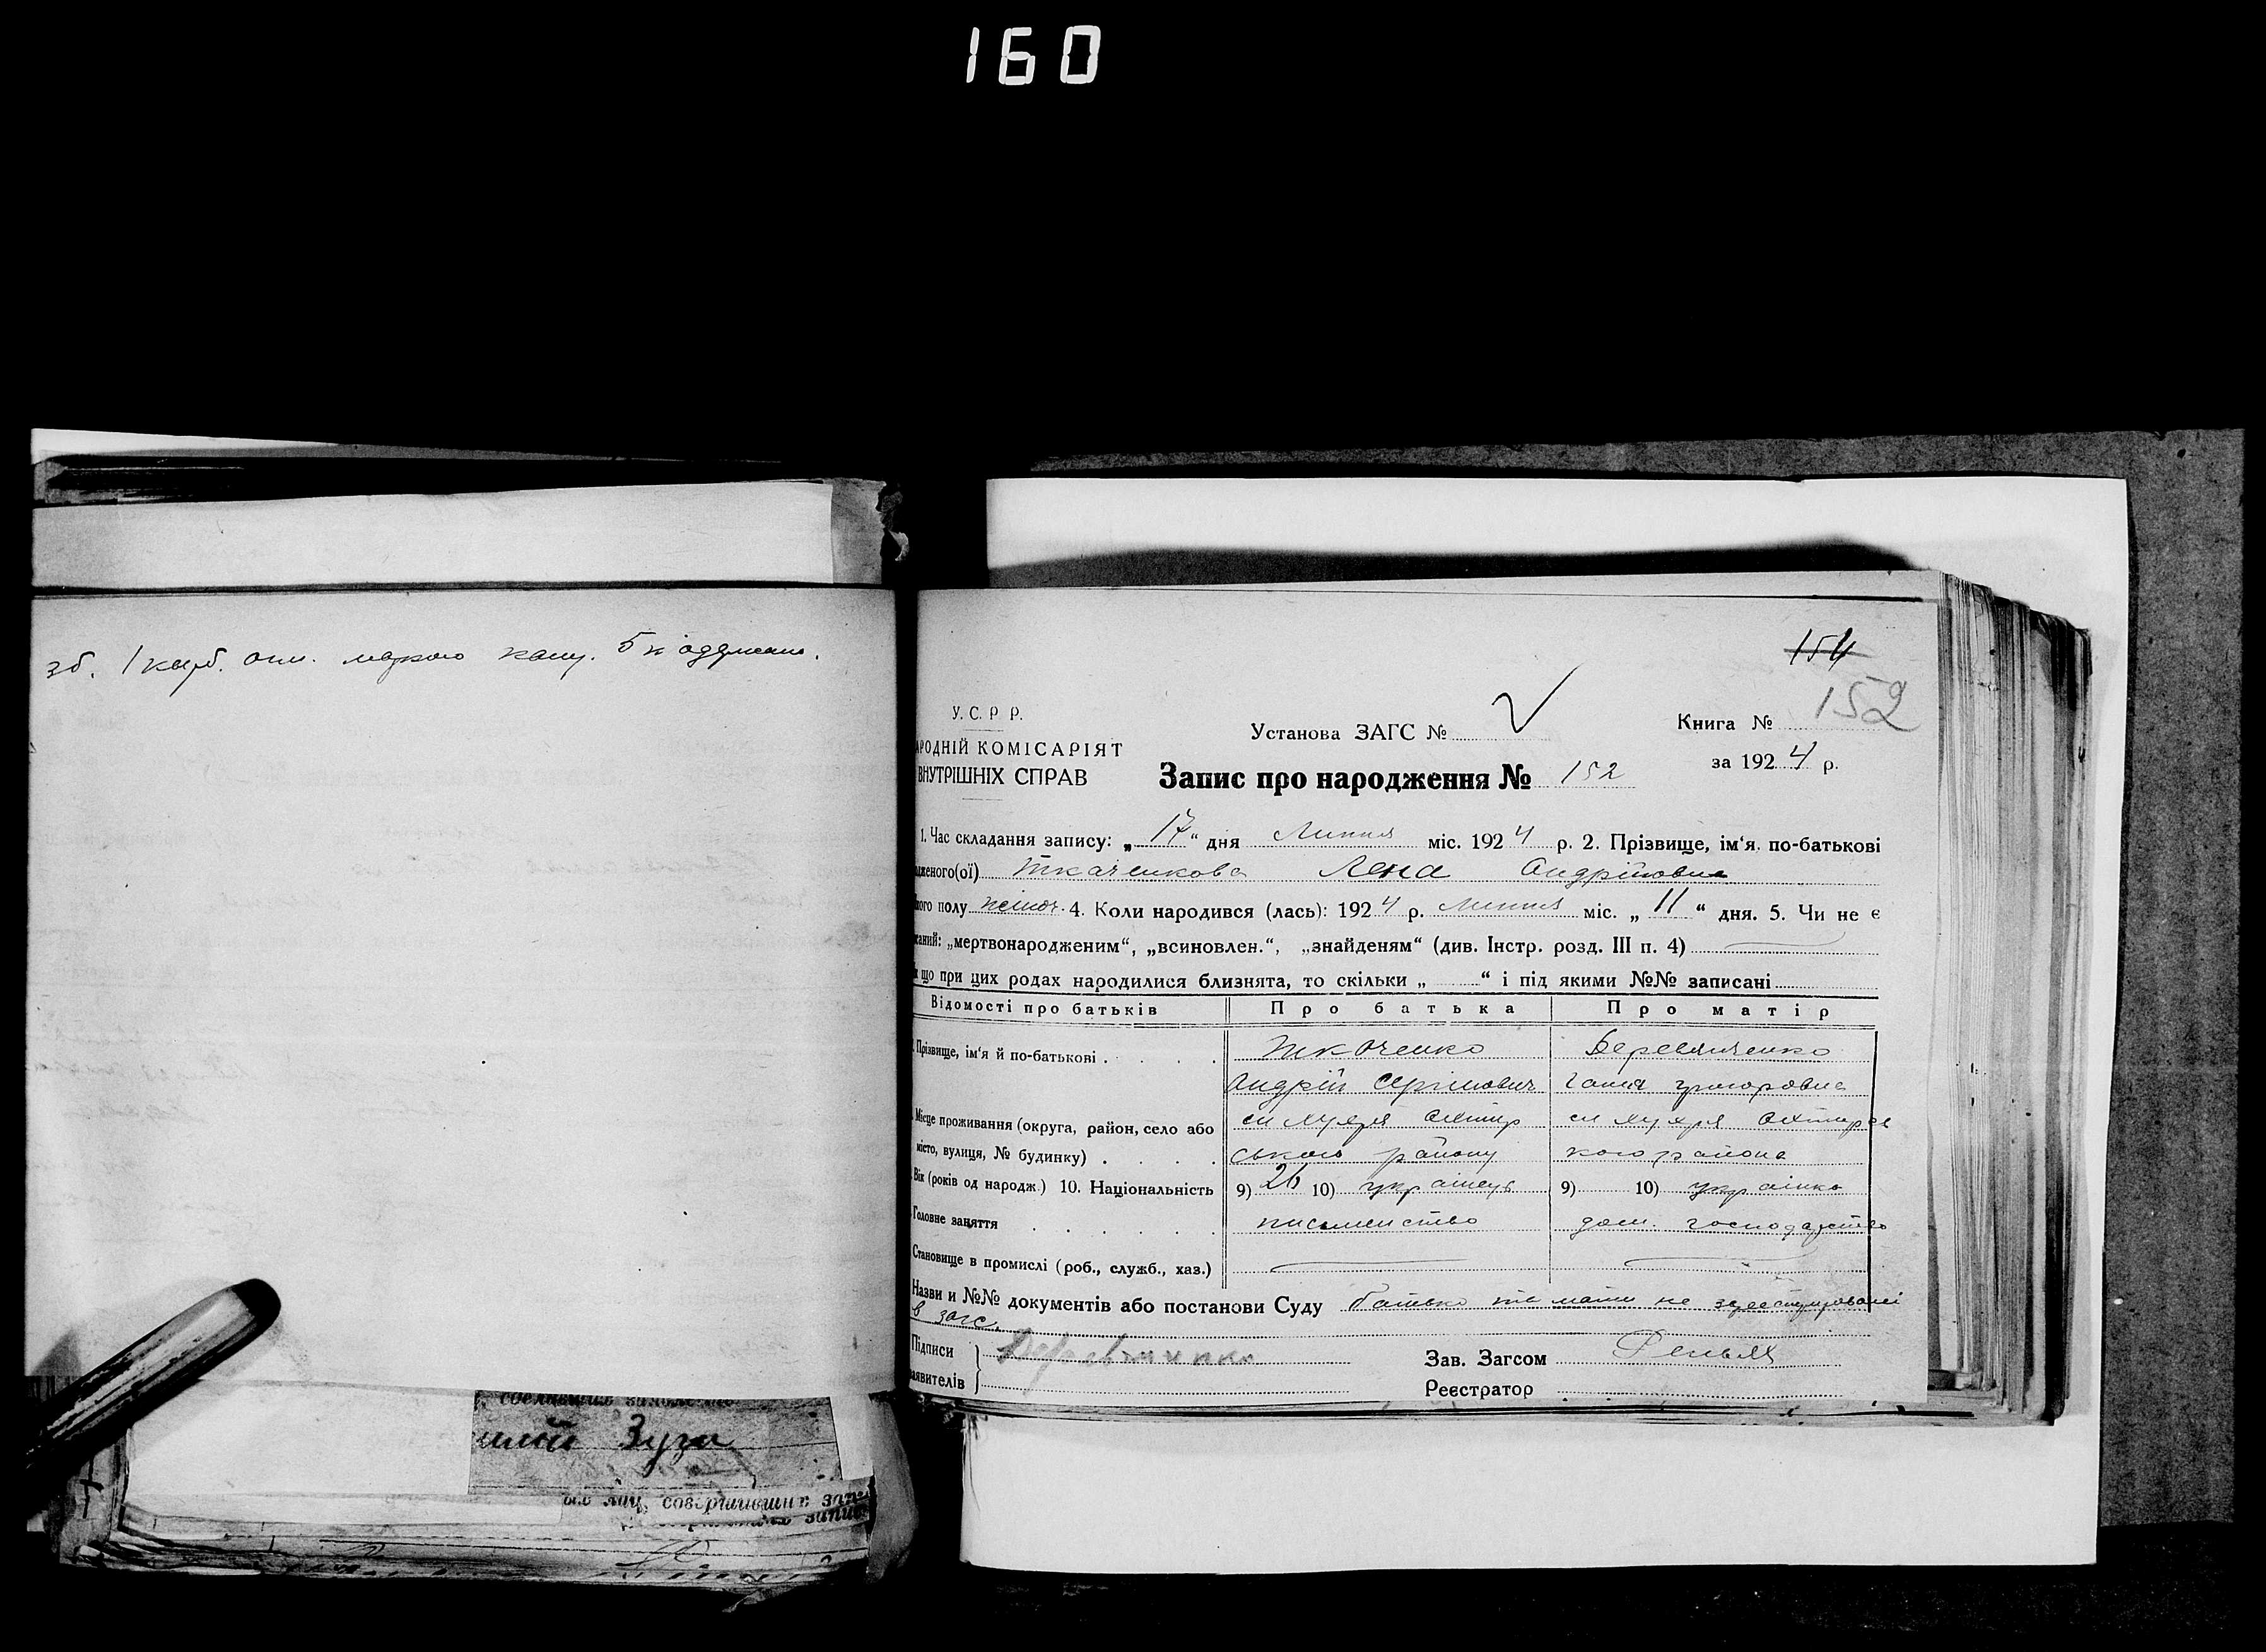 160
зб. 1 карб. 5 к одержано.
154
152
У. С. Р Р.
АРОДНІЙ КОМІСАРІЯТ
ВНУТРІШНІХ СПРАВ
Установа ЗАГС №
Книга №
за 1924 р.
Запис про народження № 152
1. Час складання запису: „ 17 “ дня Липня міс. 1924 р. 2. Прізвище, ім‘я, по-батькові
дженого(ої) Ткаченкова Лєна Андріївна
ного полу жіноч. 4. Коли народився (лась): 1924 р. Липня міс. „ 11 “ дня. 5. Чи не є
саний: „мертвонародженим“, „всиновлен.“, „знайденям“ (див. Інстр. розд. III п. 4)
що при цих родах народилися близнята, то скільки „ “ і під якими №№ записані
Відомості про батьків Про батька Про матір
Прізвище, ім‘я й по-батькові . Ткаченко Деревянченко
Андрій Сергійович Ганна Григоровна
Місце проживання (округа, район, село або
місто, вулиця, № будинку) . ського району кого района
Вік (років од народж.) 10. Національність 9) 26 10) українець 9) 10) українка
Головне заняття письменство дом. господарство
Становище в промислі (роб., служб., хаз.)
Назви и №№ документів або постанови Суду батько та мати не зареєстровані
в загс.
Підписи
аявителів
Зав. Загсом
Реєстратор
Зуги
лиц, совершивших запи
запис